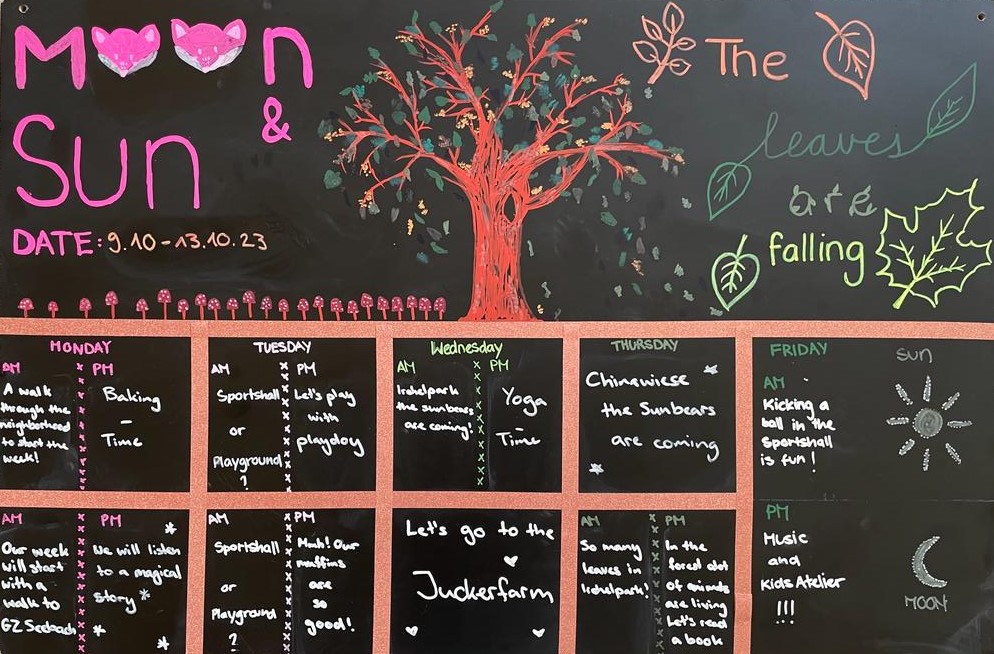 Moon
&
Sun
DATE: 9.10-13.10.23
The
leaves
are
falling
MONDAY
AM
A walk
through the
neighborhood
to start the
week!
PM
Baking
-
Time
TUESDAY
AM
Sportshall
or
Playground
?
PM
Let's play
with
playdoy
Wednesday
AM
Irchelpark
the sunbears
are coming!
PM
Yoga
-
Time
THURSDAY
Chinawiese
the Sunbears
are coming
FRIDAY
AM
Kicking a
ball in the
Sportshall
is fun!
Sun
AM
Our week
will start
with a
walk to
GZ Seebach
PM
We will listen
to a magical
story
AM
Sportshall
or
Playground
?
PM
Mmh! Our
muffins
are
so
good!
Let's go to the
Juckerfarm
AM
So many
leaves in
Irchelpark!
PM
In the
forest alot
of animals
are living
Let's read
a book
PM
Music
and
Kids Atelier
!!!
MOON